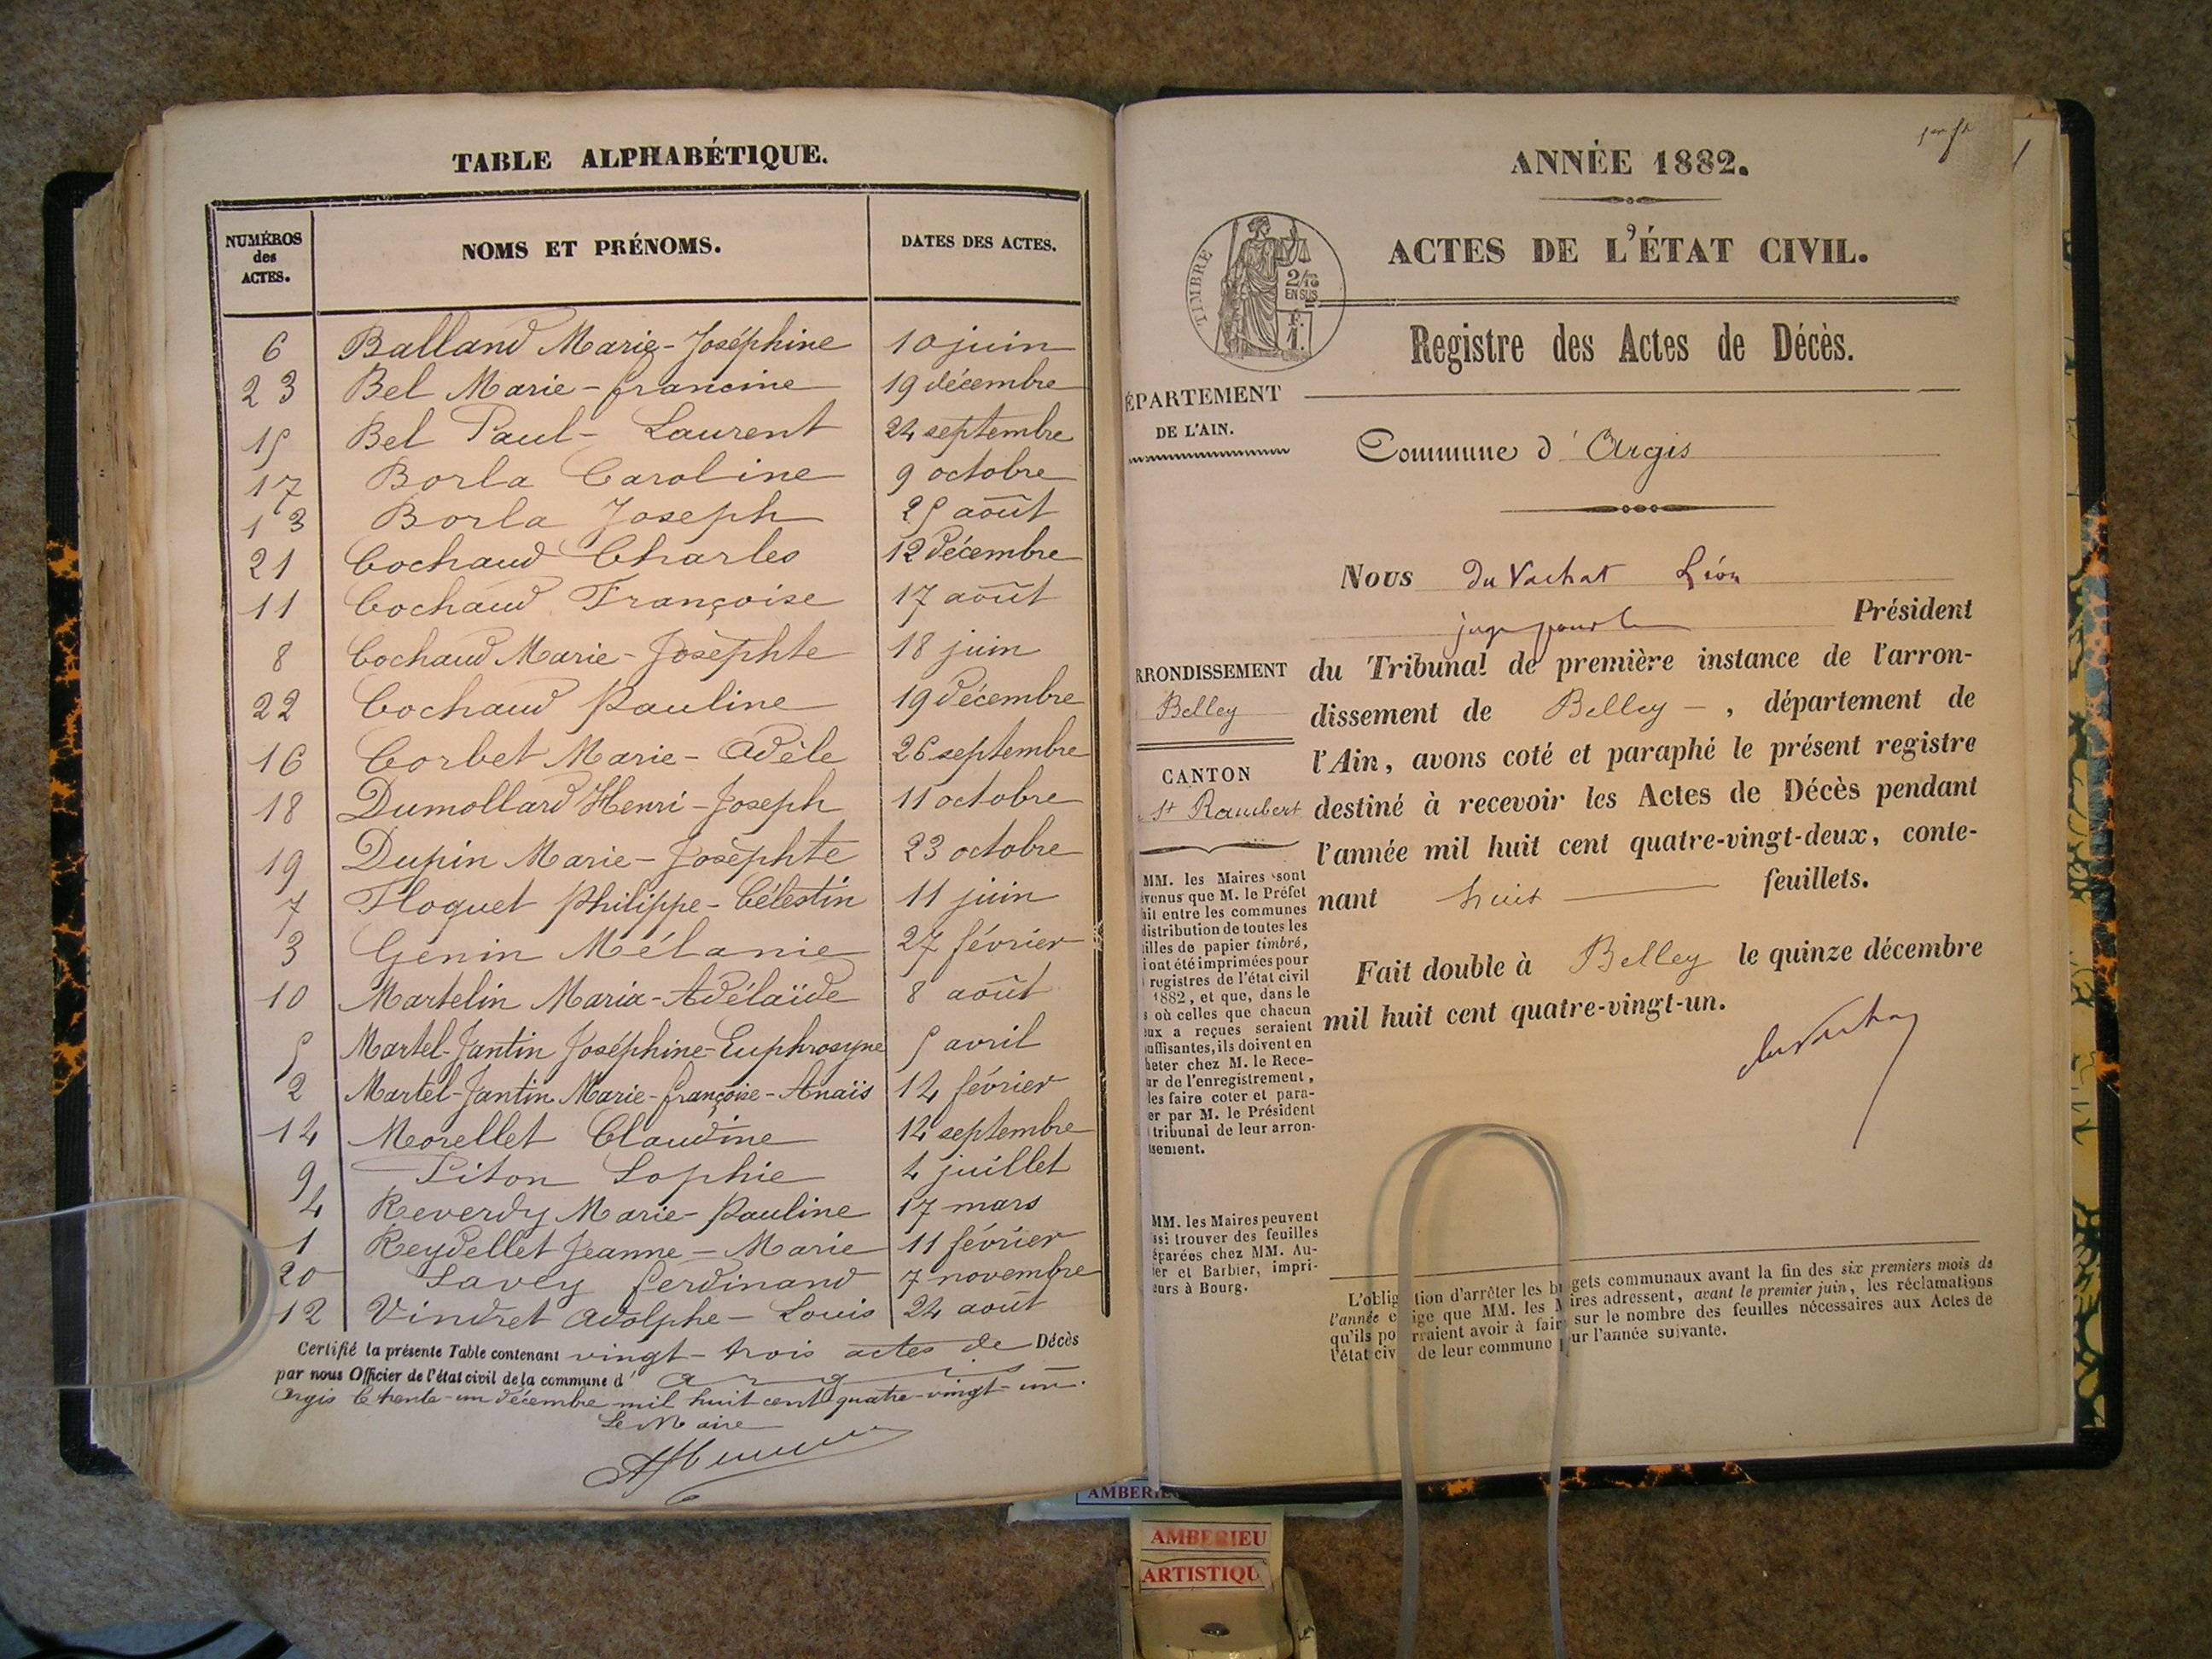 TABLE ALPHABÉTIQUE.
NUMÉROS des ACTES. NOMS ET PRÉNOMS. DATES DES ACTES.
6 Balland Marie-Joséphine 10 juin
23 Bel Marie-francine 19 décembre
15 Bel Paul-Laurent 24 septembre
17 Borla Caroline 9 octobre
13 Borla Joseph 25 août
21 Cochaud Charles 12 décembre
11 Cochaud Françoise 17 août
8 Cochaud Marie-Josèphte 18 juin
22 Cochaud Pauline 19 décembre
16 Corbet Marie-Adèle 26 septembre
18 Dumollard Henri-Joseph 11 octobre
19 Dupin Marie-Josèphte 23 octobre
7 Floquet Philippe-Célestin 11 juin
3 Genin Mélanie 27 février
10 Martelin Maria-Adélaïde 8 août
5 Martel-Jantin Joséphine-Euphrosyne 5 avril
2 Martel-Jantin Marie-françoise-Anaïs 14 février
14 Morellet Claudine 12 septembre
9 Piton Sophie 4 juillet
4 Reverdy Marie-Pauline 17 mars
1 Reydellet Jeanne-Marie 11 février
20 Savey ferdinand 7 novembre
12 Vindret Adolphe-Louis 24 août
Certifié la présente Table contenant vingt-trois actes de Décès
par nous Officier de l'état civil de la commune d' argis
Argis le trente-un décembre mil huit cent quatre-vingt-un.
Le Maire
ANNÉE 1882.
1
ACTES DE L'ÉTAT CIVIL.
TIMBRE
2/10
EN SUS
1 F.
Registre des Actes de Décès.
ÉPARTEMENT
DE L'AIN.
Commune d'Argis
Nous du Vachat Léon
juge pour le Président
RRONDISSEMENT
Belley
CANTON
St Rambert
du Tribunal de première instance de l'arron-
dissement de Belley, département de
l'Ain, avons coté et paraphé le présent registre
destiné à recevoir les Actes de Décès pendant
l'année mil huit cent quatre-vingt-deux, conte-
nant huit feuillets.
Fait double à Belley le quinze décembre
mil huit cent quatre-vingt-un.
duVachat
MM. les Maires sont
évenus que M. le Préfet
ait entre les communes
distribution de toutes les
illes de papier timbré,
i ont été imprimées pour
registres de l'état civil
1882, et que, dans le
s où celles que chacun
eux a reçues seraient
uffisantes, ils doivent en
heter chez M. le Rece-
ur de l'enregistrement,
les faire coter et para-
er par M. le Président
tribunal de leur arron-
ssement.
MM. les Maires peuvent
ssi trouver des feuilles
éparées chez MM. Au-
ier et Barbier, impri-
eurs à Bourg.
L'oblig tion d'arrêter les bu gets communaux avant la fin des six premiers mois de
l'année e ige que MM. les M ires adressent, avant le premier juin, les réclamations
qu'ils po rraient avoir à fair sur le nombre des feuilles nécessaires aux Actes de
l'état civ de leur commune p ur l'année suivante.
AMBERIE
AMBERIEU
ARTISTIQU